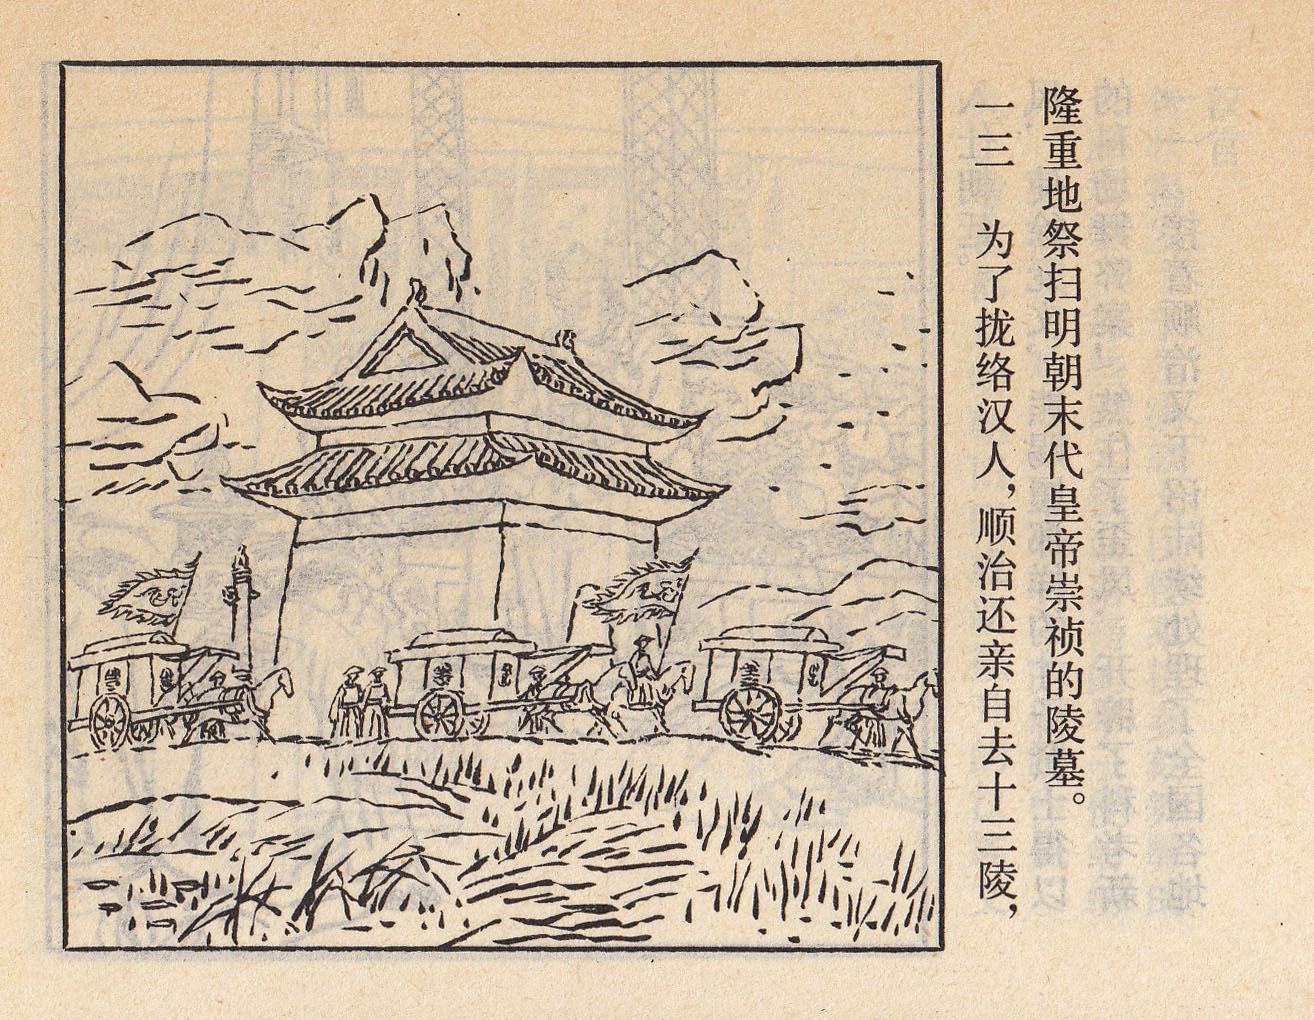 一三 为了拢络汉人，顺治还亲自去十三陵，
隆重地祭扫明朝末代皇帝崇祯的陵墓。